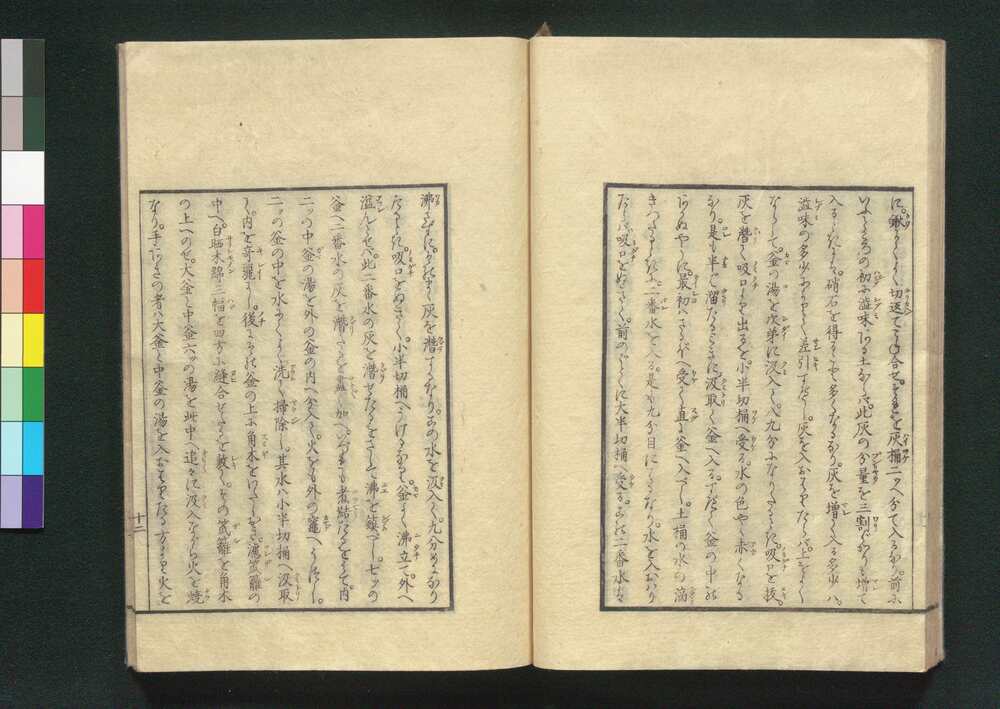 に。鍬にてよくよく切返てまぜ合せ。それを灰桶二ツへ分て入るなり。前に
いふところの初め塩味ある土なれば。此灰の分量を三割ばかりも増て
入るときは。硝石を得ること多くなるなり。灰を増て入る多少ハ。
塩味の多少によりて差引すべし。灰を入おはりたらバ。上をよく
ならして。釜の湯を次第に汲入て。九分になりたるとき。吸口を抜。
灰を潜て吸口より出るを。小半切桶へ受る。水の色やゝ赤くなる
なり。是も半に溜たるときに汲取て釜へ入るべし。釜の中の
へらぬやうに。最初へ受て直に釜へ入べし。土桶の水の滴
きつたるときに。二番水を入る。是も九分目にするなり。水を入おはり
たらバ吸口をぬきて。前のごとくに大半切桶へ受る。この二番水は
沸さずに。灰を潜すなり。この水を汲入て。九分めになり
たるとき。吸口をぬきて。小半切桶へうけるなり。釜よく沸立て。外へ
溢んとせバ。此二番水の灰を潜せたるをさして沸を鎮べし。七ツの
釜へ二番水の灰を潜たるを加へ。いづれも煮詰たるとき。内
二ツの中釜の湯を外の釜の内へ分入て。火をも外の竈へうつすべし。
二ツの釜の中を水にてよく洗ひ掃除し。其水ハ小半切桶へ汲取
て。内を奇麗にし。後にその釜の上に角木をわたしおき。漉笊籬の
中へ。白晒木綿三幅を四方に縫合せたるを敷て。その笊籬を角木
の上へのせ。大釜と中釜六ツの湯を此中へ追々に汲入ながら火を焼
なり。手あきの者ハ大釜と中釜の湯を入おはりたる方より火を
十二